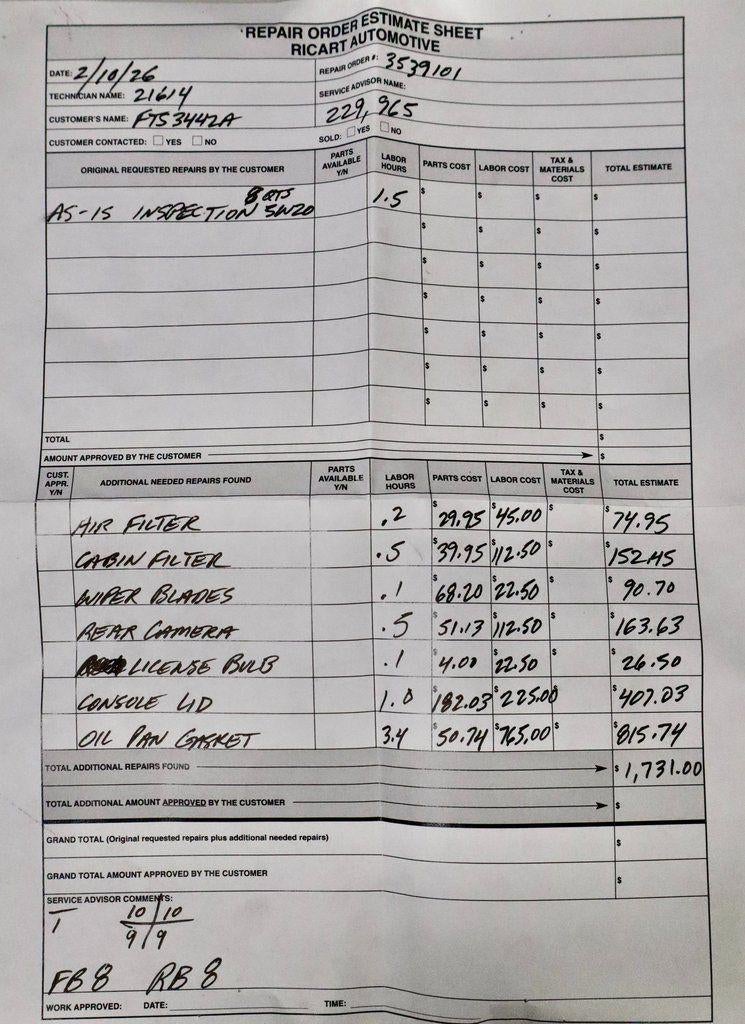 REPAIR ORDER ESTIMATE SHEET
RICART AUTOMOTIVE
DATE: 2/10/26 REPAIR ORDER #: 3539101
TECHNICIAN NAME: 21614 SERVICE ADVISOR NAME:
CUSTOMER'S NAME: FTS3442A 229,965
CUSTOMER CONTACTED: YES NO SOLD: YES NO
ORIGINAL REQUESTED REPAIRS BY THE CUSTOMER PARTS AVAILABLE Y/N LABOR HOURS PARTS COST LABOR COST TAX & MATERIALS COST TOTAL ESTIMATE
8 QTS
AS-IS INSPECTION 5W20 1.5 $ $ $ $
$ $ $ $
$ $ $ $
$ $ $ $
$ $ $ $
$ $ $ $
$ $ $ $
TOTAL $
AMOUNT APPROVED BY THE CUSTOMER $
CUST. APPR. Y/N ADDITIONAL NEEDED REPAIRS FOUND PARTS AVAILABLE Y/N LABOR HOURS PARTS COST LABOR COST TAX & MATERIALS COST TOTAL ESTIMATE
AIR FILTER .2 $29.95 $45.00 $ $74.95
CABIN FILTER .5 $39.95 $112.50 $ $152.45
WIPER BLADES .1 $68.20 $22.50 $ $90.70
REAR CAMERA .5 $51.13 $112.50 $ $163.63
LICENSE BULB .1 $4.00 $22.50 $ $26.50
CONSOLE LID 1.0 $182.03 $225.00 $ $407.03
OIL PAN GASKET 3.4 $50.74 $765.00 $ $815.74
TOTAL ADDITIONAL REPAIRS FOUND $1,731.00
TOTAL ADDITIONAL AMOUNT APPROVED BY THE CUSTOMER $
GRAND TOTAL (Original requested repairs plus additional needed repairs) $
GRAND TOTAL AMOUNT APPROVED BY THE CUSTOMER $
SERVICE ADVISOR COMMENTS:
T 10/10
9/9
FB8 RB8
WORK APPROVED: DATE: TIME: